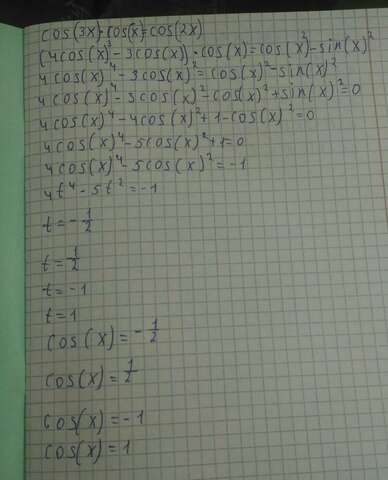 cos(3x)·cos(x)=cos(2x)
(4cos(x)³-3cos(x))·cos(x)=cos(x)²-sin(x)²
4cos(x)⁴-3cos(x)²=cos(x)²-sin(x)²
4cos(x)⁴-3cos(x)²-cos(x)²+sin(x)²=0
4cos(x)⁴-4cos(x)²+1-cos(x)²=0
4cos(x)⁴-5cos(x)²+1=0
4cos(x)⁴-5cos(x)²=-1
4t⁴-5t²=-1
t=-1/2
t=1/2
t=-1
t=1
cos(x)=-1/2
cos(x)=1/2
cos(x)=-1
cos(x)=1